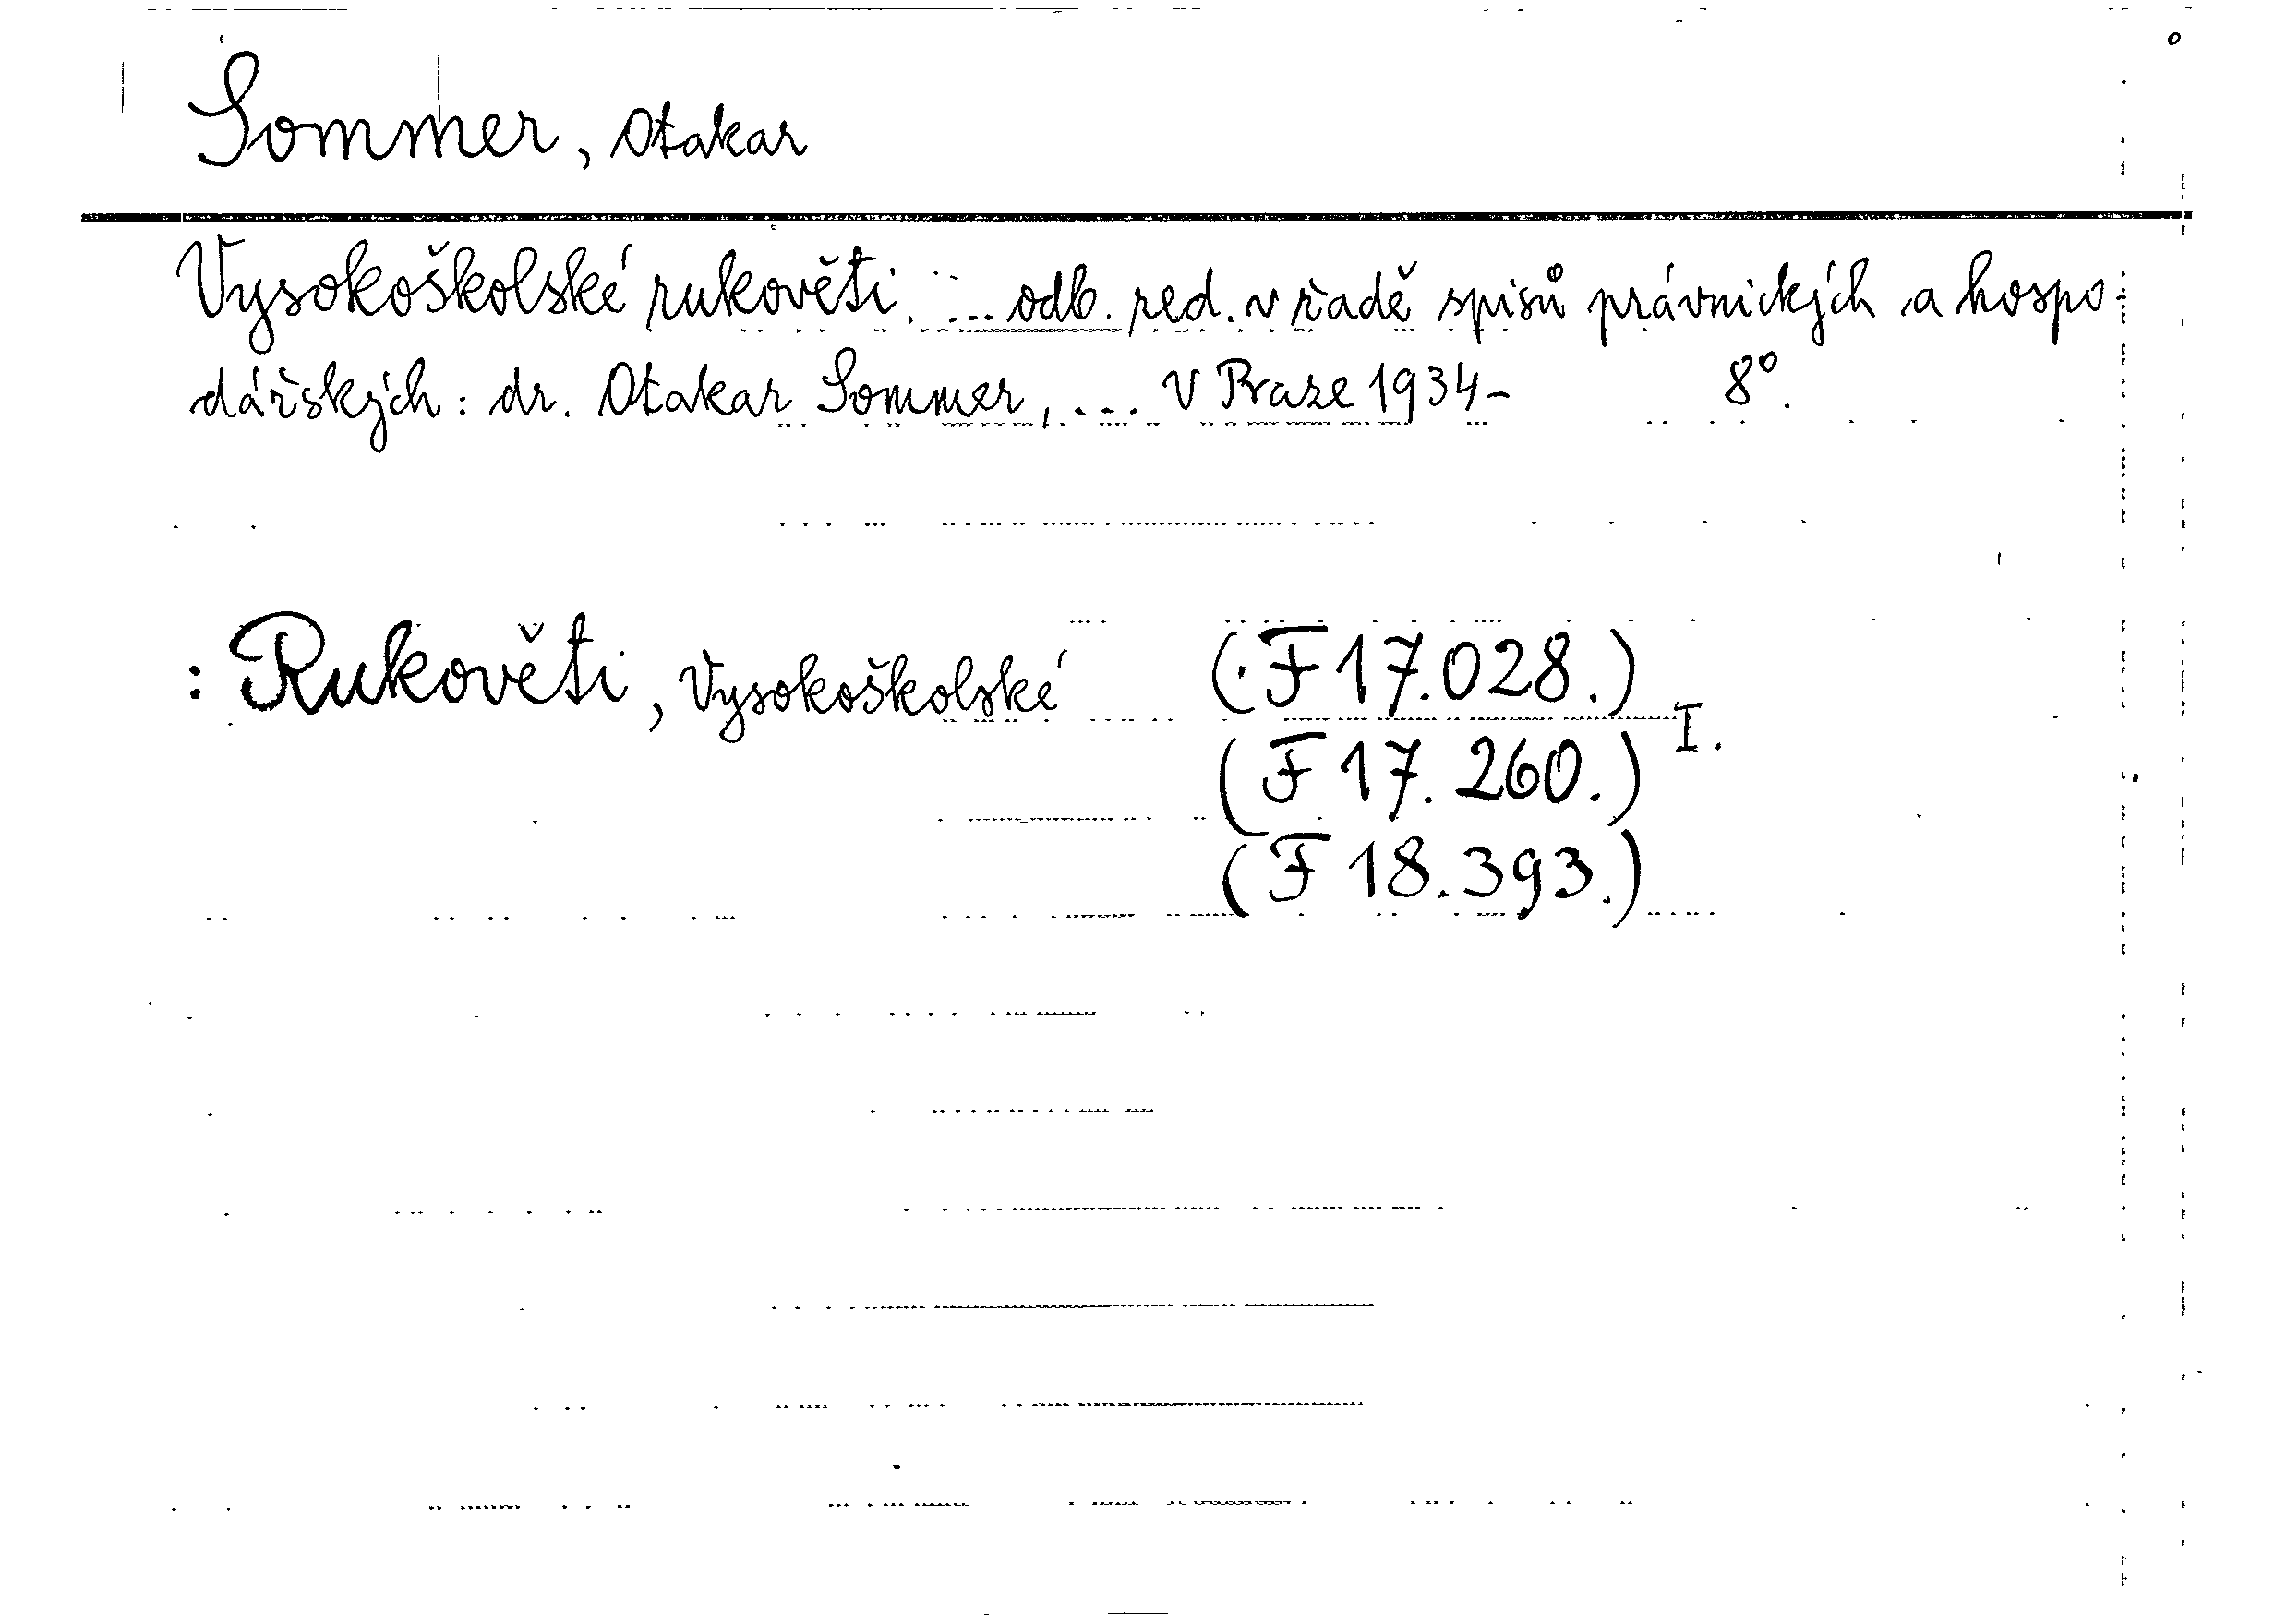 Sommer, Otakar
Vysokoškolské rukověti. ... odb. red. v řadě spisů právnických a hospo-
dářských: dr. Otakar Sommer, ... V Praze 1934- 8°.
: Rukověti, Vysokoškolské (F 17.028.)
I.
(F 17.260.)
(F 18.393.)